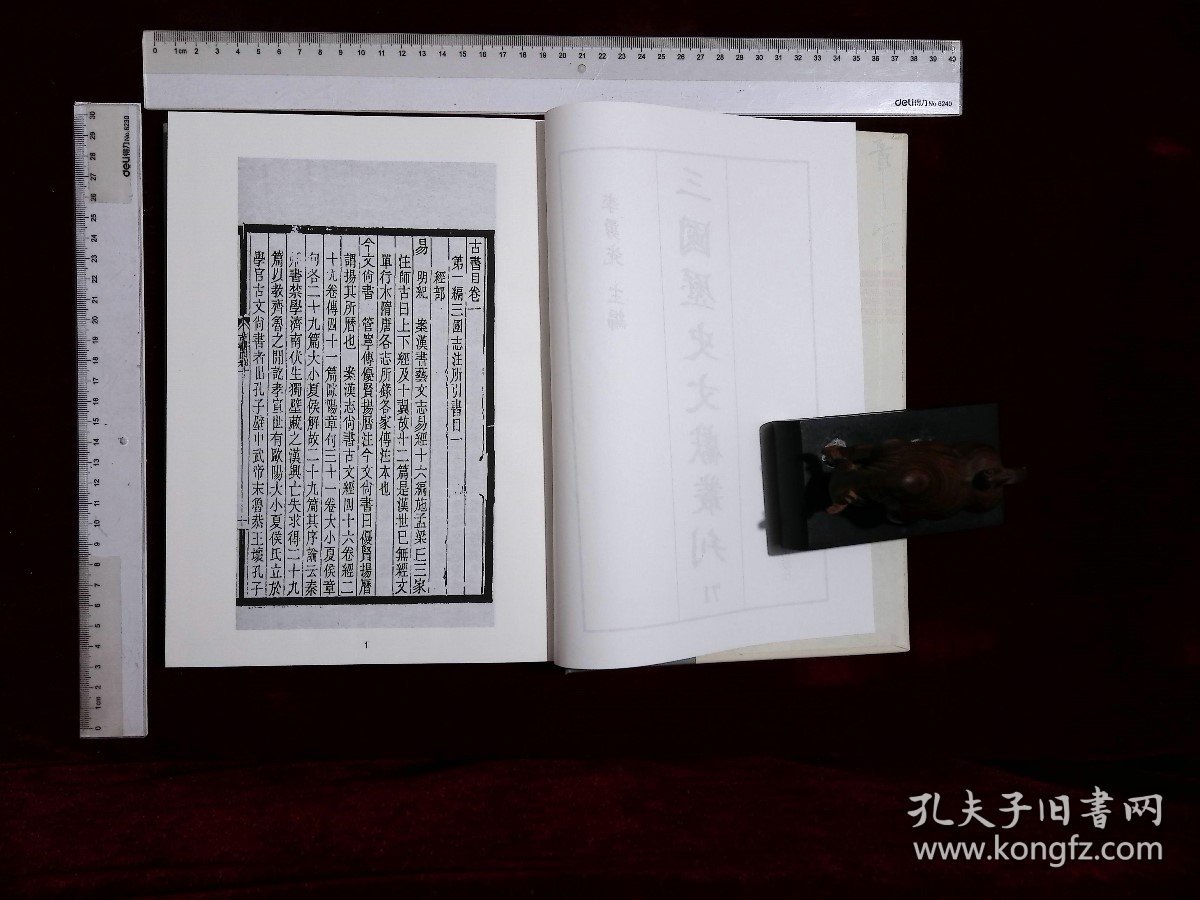 0 1cm 2 3 4 5 6 7 8 9 10 11 12 13 14 15 16 17 18 19 20 21 22 23 24 25 26 27 28 29 30 31 32 33 34 35 36 37 38 39 40
deli得力 No.6240
deli得力 No.6230
30 29 28 27 26 25 24 23 22 21 20 19 18 17 16 15 14 13 12 11 10 9 8 7 6 5 4 3 2 1cm 0
三國歷史文獻叢刊 71
主編
古書目卷一
第一編三國志注所引書目一
經部
易 明紀 案漢書藝文志易經十六編施孟梁巨三家
注師古曰上下經及十翼故十二篇是漢世已無經文
單行本隋唐各志所錄各家傳注本也
今文尚書 管寧傳優賢揚曆注今文尚書曰優賢揚曆
謂揚其所曆也 案漢志尚書古文經四十六卷經二
十九卷傳四十一篇歐陽章句三十一卷大小夏侯章
句各二十九篇大小夏侯解故二十九篇其序論云秦
書禁學濟南伏生獨壁藏之漢興亡失求得二十九
篇以教齊魯之間訖孝宣世有歐陽大小夏侯氏立於
學官古文尚書者出孔子壁中武帝末魯恭王壞孔子
1
孔夫子旧书网
www.kongfz.com